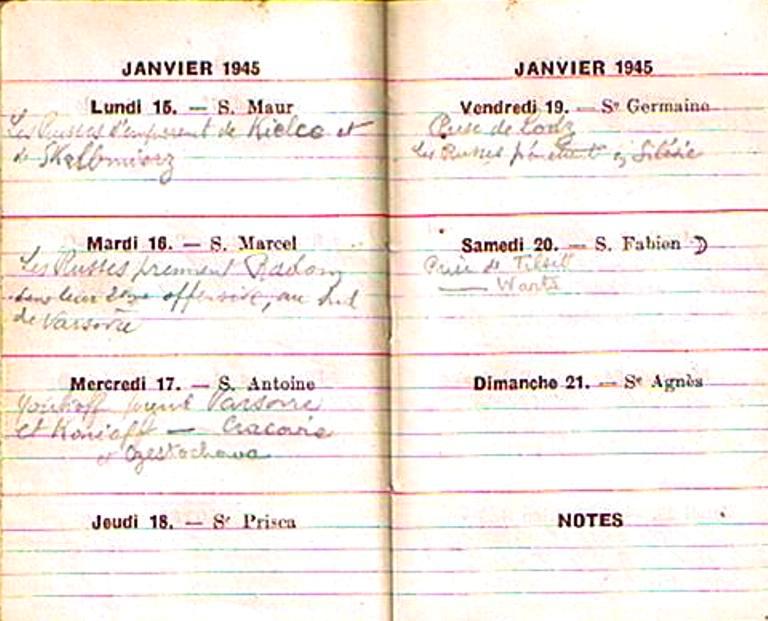 JANVIER 1945
Lundi 15. — S. Maur
Les Russes s'emparent de Kielce et
de Skalbmierz
Mardi 16. — S. Marcel
Les Russes prennent Radom
dans leur 2ème offensive, au Sud
de Varsovie
Mercredi 17. — S. Antoine
Joukoff prend Varsovie
et Konieff — Cracovie
et Częstochowa
Jeudi 18. — Sᵉ Prisca
JANVIER 1945
Vendredi 19. — Sᵉ Germaine
Prise de Lodz
Les Russes pénètrent en Silésie
Samedi 20. — S. Fabien ☽
Prise de Tilsitt
— Warta
Dimanche 21. — Sᵉ Agnès
NOTES